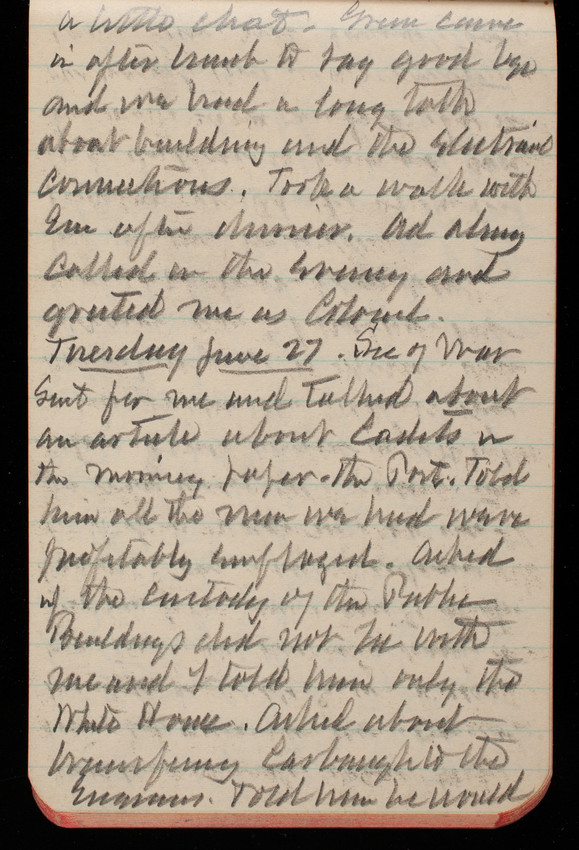 a little chat. Green came
in after lunch to say good bye
and we had a long talk
about building and the electrical
connections. Took a walk with
Em after dinner.
called in the evening and
greeted me as Colonel.
Tuesday June 27. Sec of War
Sent for me and talked about
an article about Cadets in
the morning paper - the Post. Told
him all the men we had were
profitably employed. Asked
if the custody of the Public
Buildings did not lie with
me and I told him only the
White House. Asked about
transferring Carbaugh to the
Engineers. Told him he would